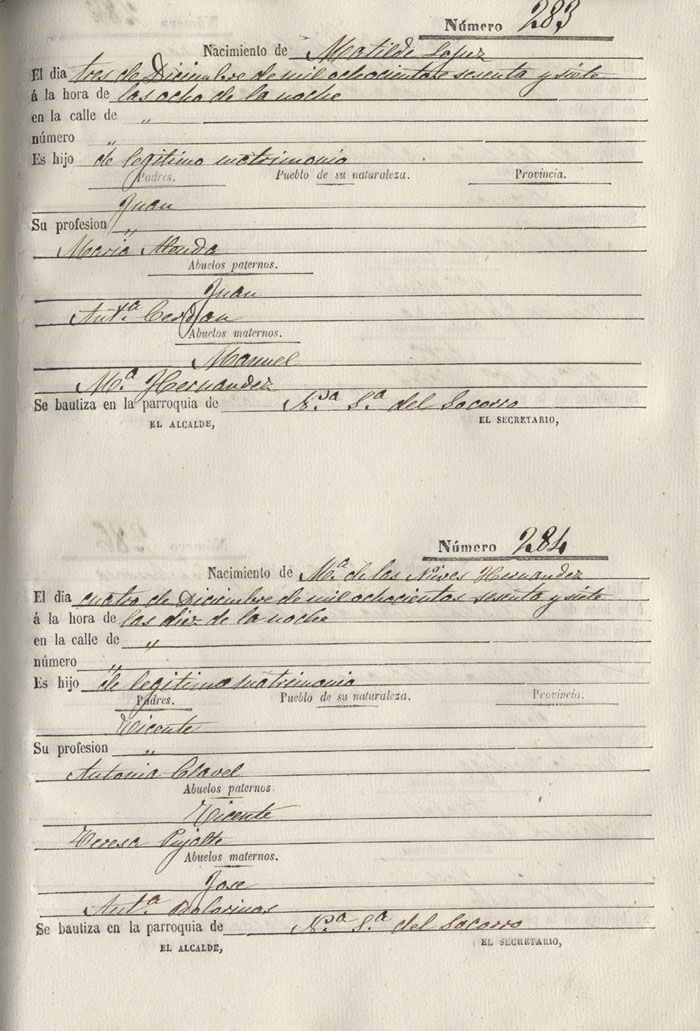 Número 283
Nacimiento de Matilde Lopez
El dia tres de Diciembre de mil ochocientos sesenta y siete
á la hora de las ocho de la noche
en la calle de „
número „
Es hijo de legitimo matrimonio
Padres. Pueblo de su naturaleza. Provincia.
Juan
Su profesion „
Maria
Abuelos paternos.
Juan
Antª Cerdan
Abuelos maternos.
Manuel
Mª Hernandez
Se bautiza en la parroquia de Nª Sª del Socorro
EL ALCALDE, EL SECRETARIO,
Número 284
Nacimiento de Mª de las Nieves Hernandez
El dia cuatro de Diciembre de mil ochocientos sesenta y siete
á la hora de las diez de la noche
en la calle de „
número „
Es hijo de legitimo matrimonio
Padres. Pueblo de su naturaleza. Provincia.
Vicente
Su profesion „
Antonia Clavel
Abuelos paternos
Vicente
Teresa Pujalte
Abuelos maternos.
Jose
Antª
Se bautiza en la parroquia de Nª Sª del Socorro
EL ALCALDE, EL SECRETARIO,